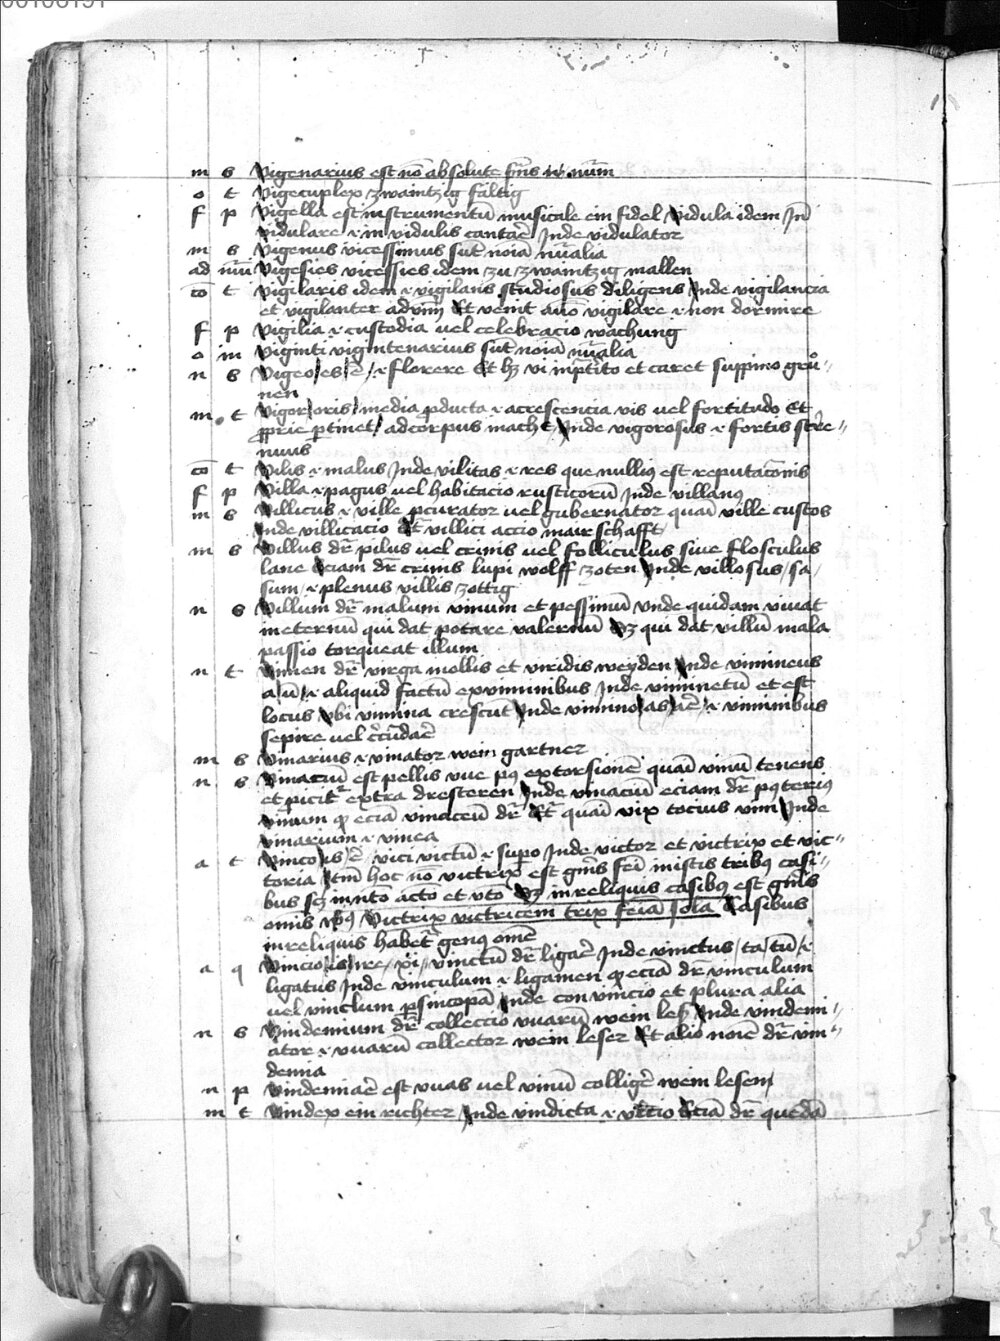 00106191
m s Vigenarius est nō absolute
o t Vigecuplex zwaintzig faltig
f p Vigella est instrumentū musicale ein fidel Vidula idem Jn̄
vidulare .i. in vidulis cantar̄ Inde vidulator
m s Vigenus vicessimus sūt noīa nūalia
ad nūm Vigesies vicessies idem zu zwaintzig mallen
cō t Vigilaris idem .i. vigilans studiosus diligens Inde vigilancia
et vigilanter advm̄ Et venit a vigilare .i. non dormire
f p Vigilia .i. custodia uel celebracio wachung
o m Viginti vigintenarius sūt noīa nūalia
n s Vigeo es ē .i. florere Et hȝ vi in p̄terito et caret suppino grů
nen
m t Vigor oris media ꝓducta .i. acrescencia vis uel fortitudo Et
ꝓprie ꝑtinet ad corpus macht Inde vigorosus .i. fortis stre
nuus
cō t Vilis .i. malus Inde vilitas .i. res que nullius est reputacōnis
f p Villa .i. pagus uel habitacio rusticorū Inde villanꝰ
m s Villicus .i. ville ꝓcurator uel gubernator quasi ville custos
Inde villicacio Et villici accio mair schafft
m s Villus dr̄ pilus uel crinis uel folliculus siue flosculus
lane Eciam dr̄ crinis lupi wolff zoten Inde villosus sa
sum .i. plenus villis zottig
n s Villum dr̄ malum vinum et pessimū vnde quidam viuat
in eternū qui dat potare valernū Sȝ qui dat villū mala
passio torqueat illum
n t Vimen dr̄ virga mollis et viridis weyden Inde vimineus
a ū .i. aliquid factū ex viminibus Inde viminetū et est
locus vbi vimina crescūt Inde vimino as ar̄e .i. viminibus
sepire uel
m s Vinarius .i. vinator wein gartner
n s Vinaciū est pellis vue pꝰ extorsionē quasi vinū tenens
et ꝓicit̄ extra dresteren Inde vinaciū eciam dr̄
vinum ꝙ eciā vinaceū dr̄ Et quasi vix tocius vini Inde
vinarium .i. vinea
a t Vinco is ē vici victū .i. supo Inde victor et victrix et vic
toria Itm̄ hoc nō victrix est gn̄is fei mistis tribꝰ casi
bus scȝ in nt̄o act̄o et vt̄o Sȝ in reliquis casibus est gn̄is
omīs vꝰꝰ Victrix victricem trix feīa sola Casibus
in reliquis habet̄ genꝰ omē
a q Vincio is ire xi vinctū dr̄ ligar̄ Inde vinctus ta tū .i.
ligatus Inde vinculum .i. ligamen ꝙ eciā dr̄ vinculum
uel vinclum ꝑ sincopā Inde convincio et plura alia
n s Vindemium dr̄ colleccio vuarū wein leß Inde vindemi
ator .i. vuarū collector wein leser Et alio noīe dr̄ vin
demia
n p Vindemiar̄ est vuas uel vinū colliger̄ wein lesen
m t Vindex ein richter Inde vindicta .i. vltio Eciā dr̄ quedā